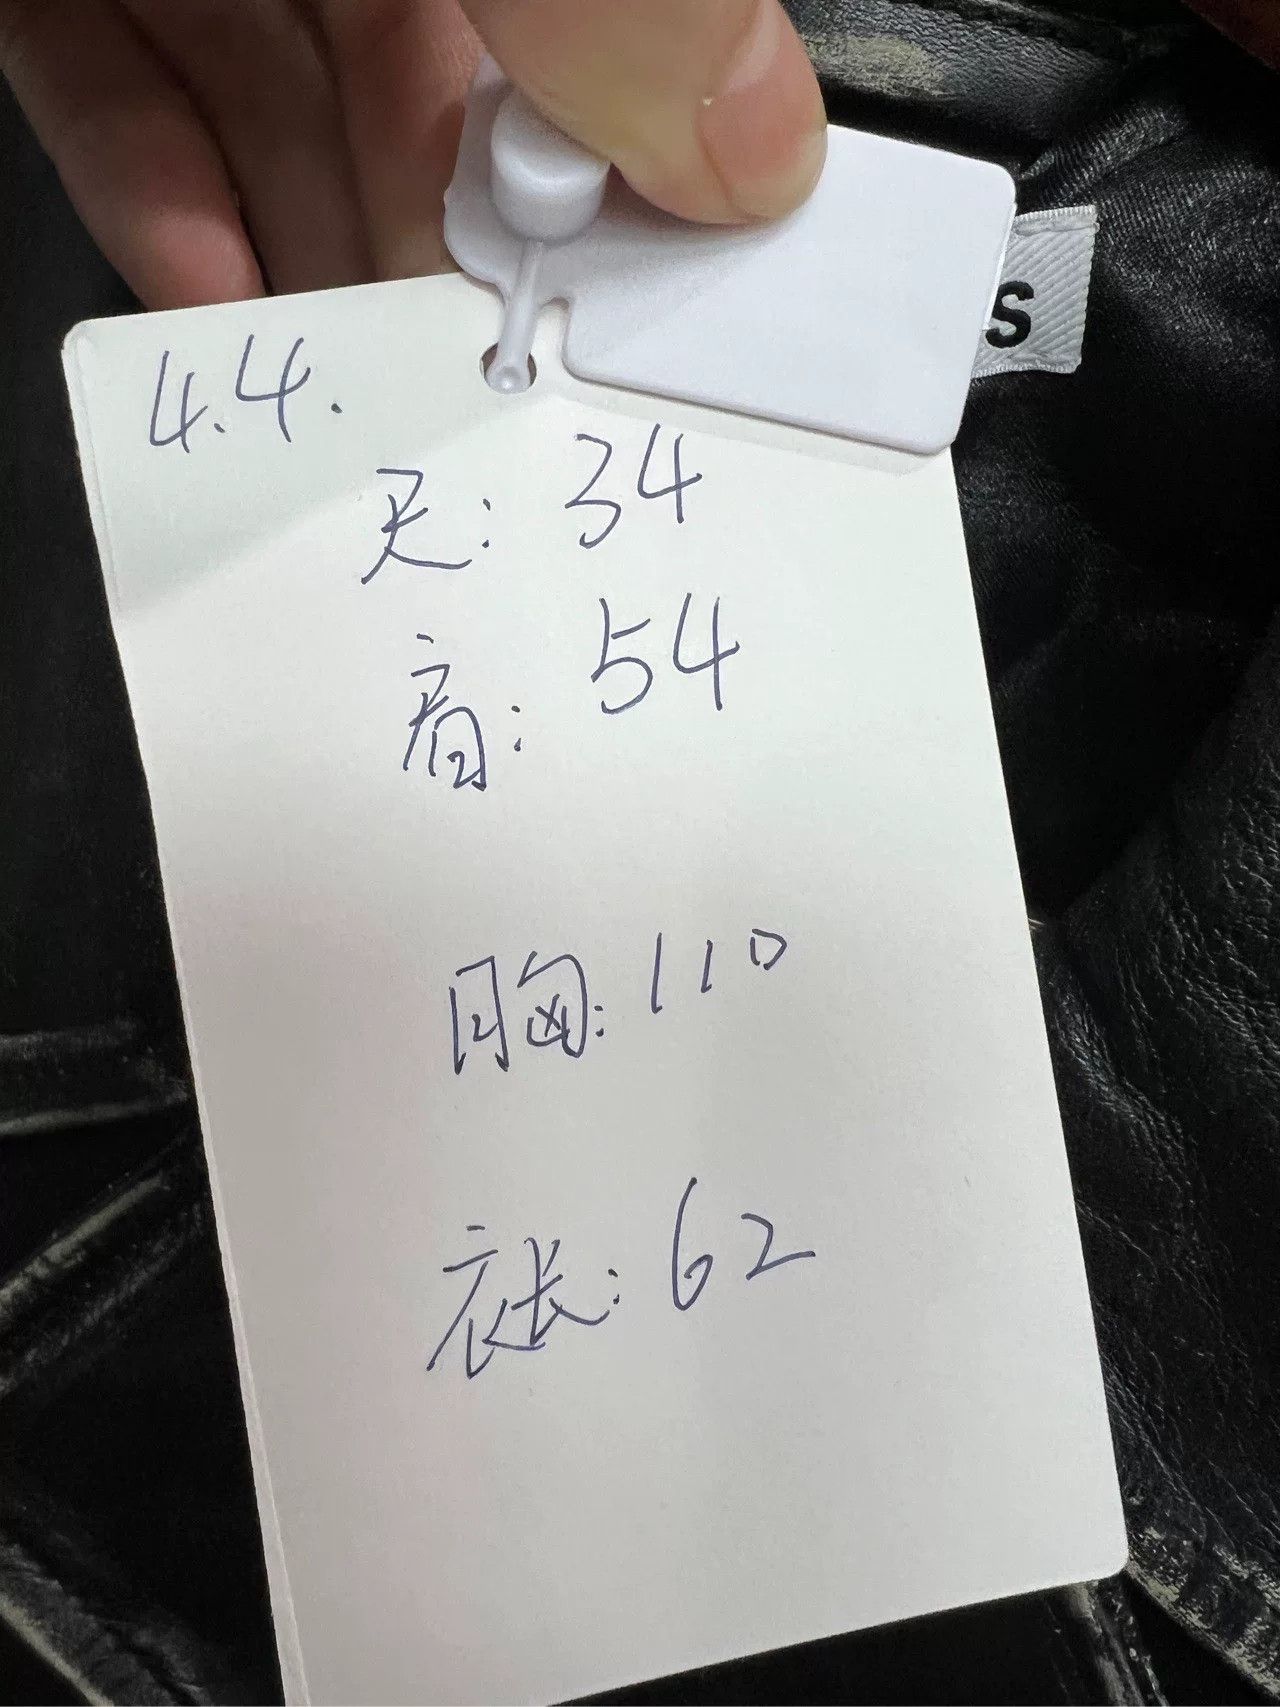 S
4.4.
尺：34
肩：54
胸：110
衣长：62